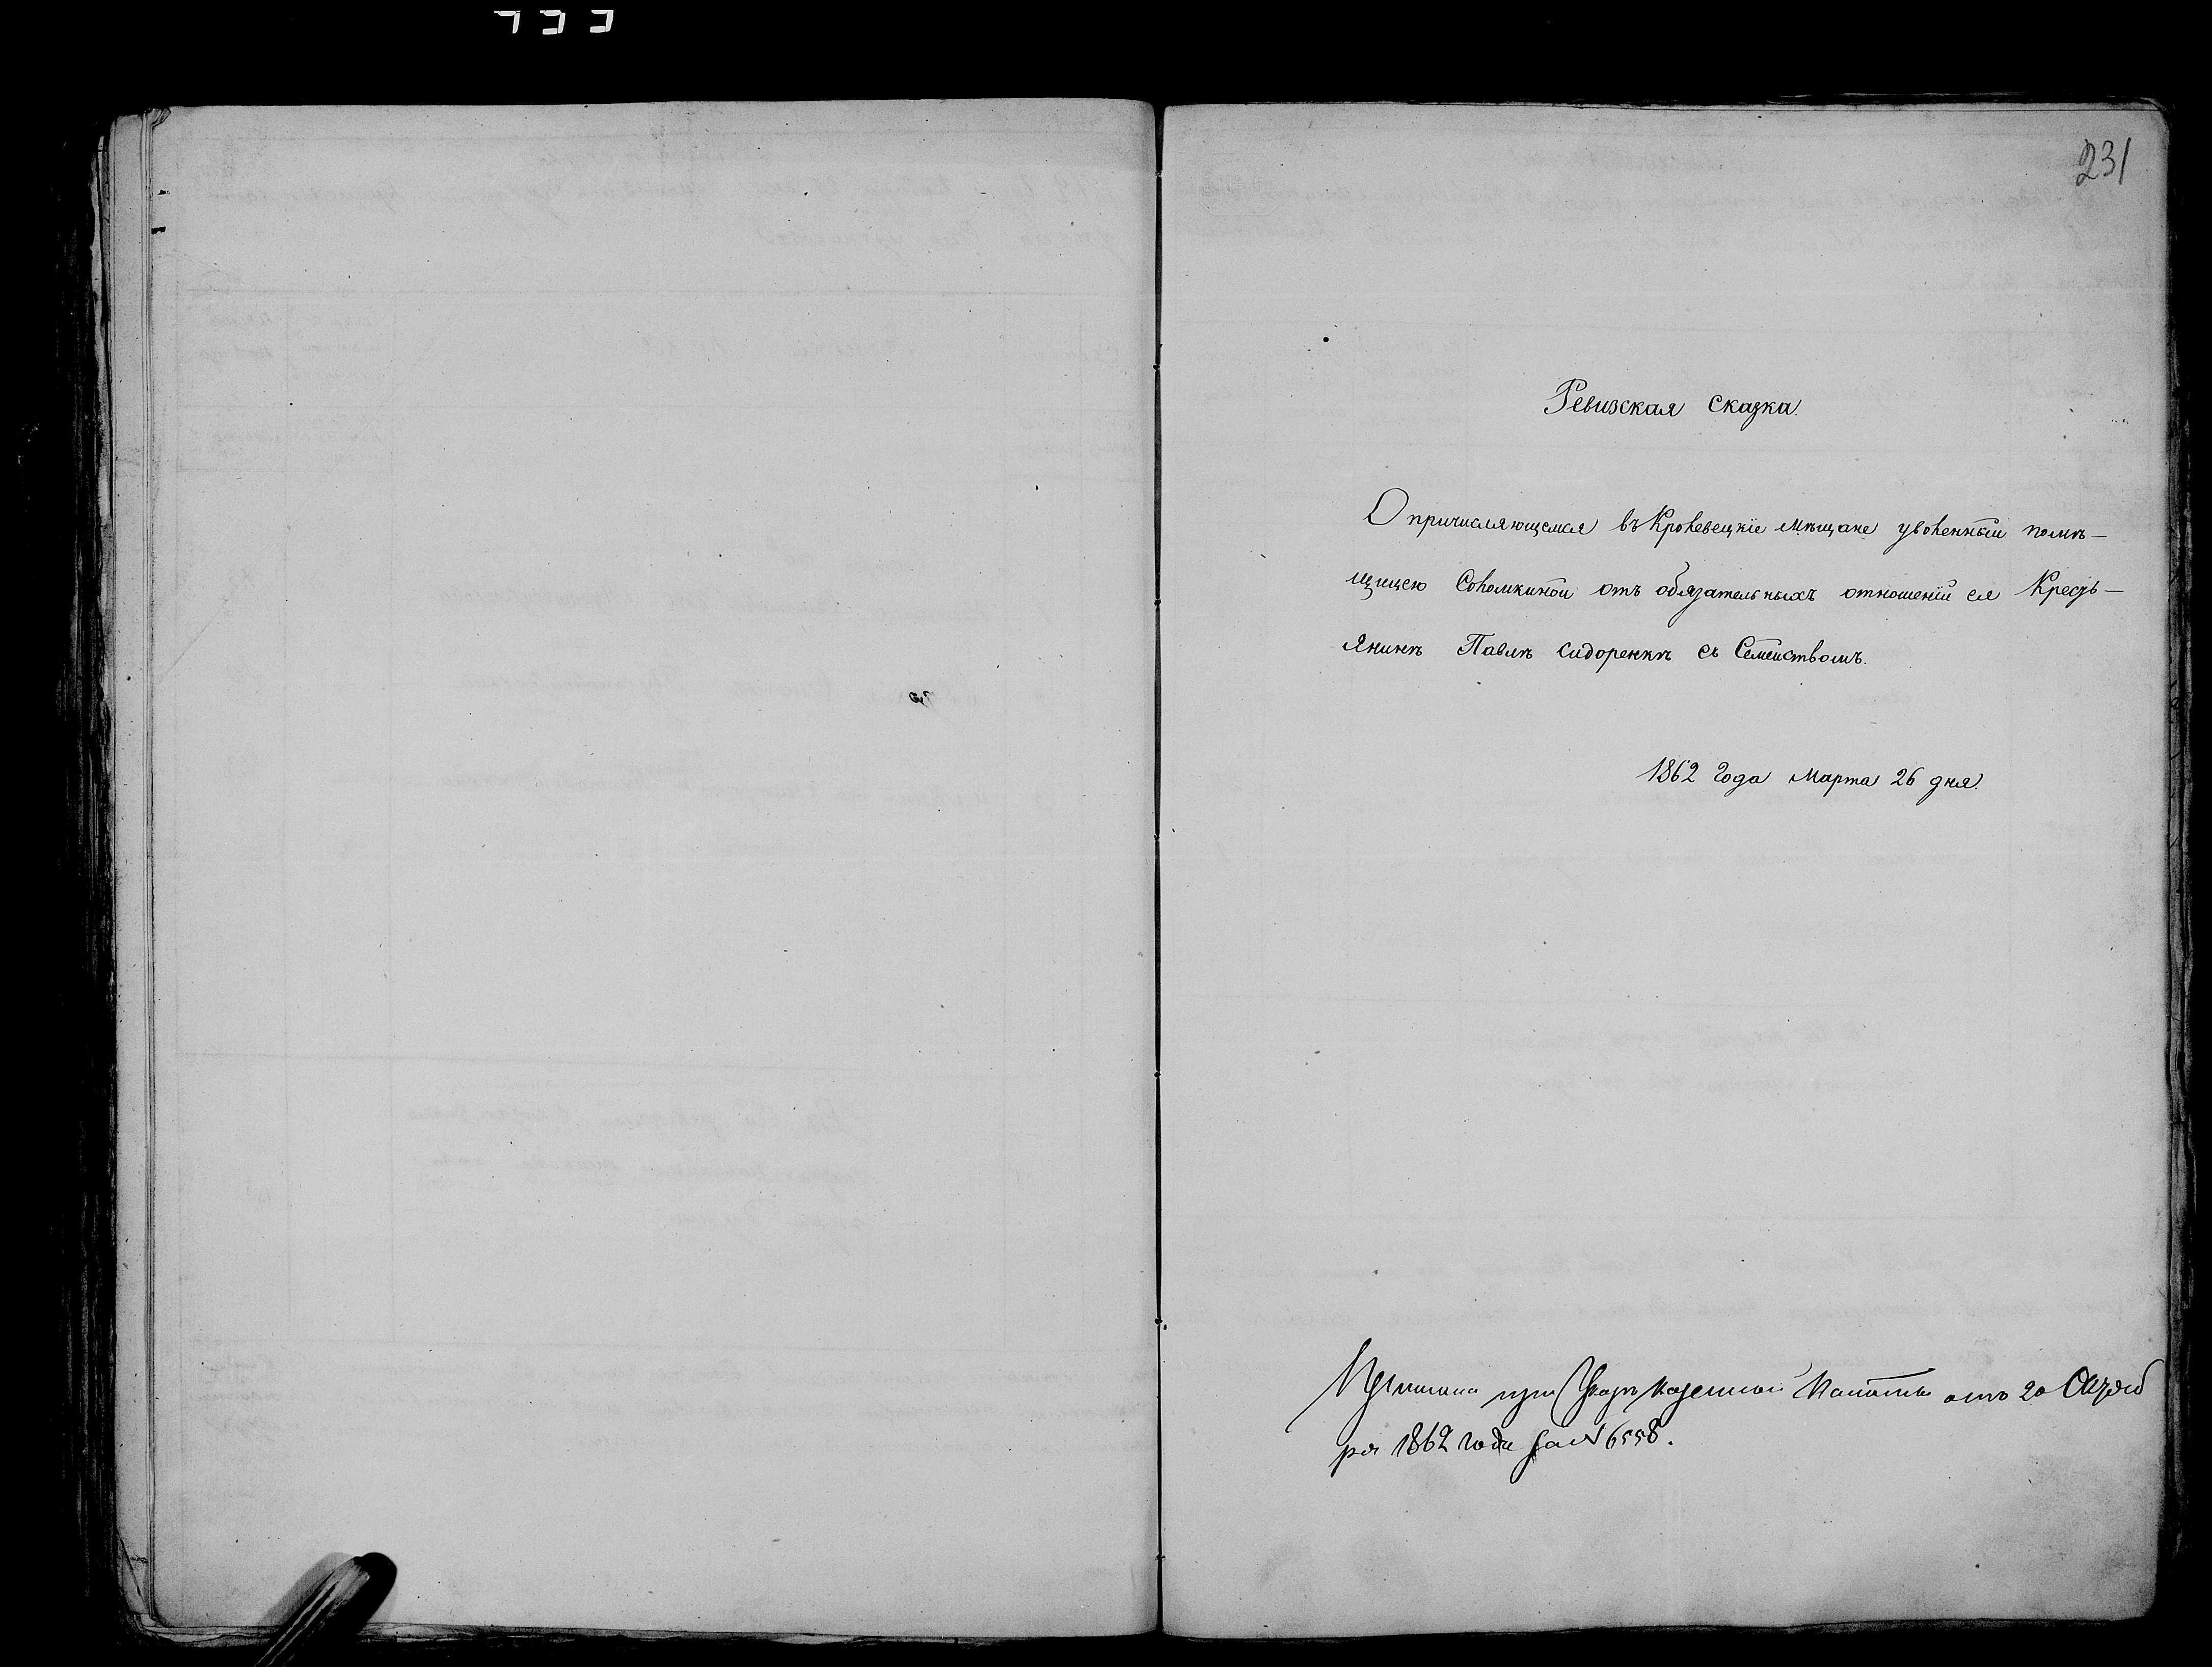 231
Ревизская сказка.
О причисляющемся въ Кролевецкіе мѣщане уволенный помѣ-
щицею Соломкиной отъ обязательныхъ отношеній ея Кресть-
янинѣ Павлѣ Сидоренкѣ съ Семействомъ.
1862 года Марта 26 дня.
при Указѣ Казенной Палаты отъ 20 Октяб
ря 1862 года за № 6558.